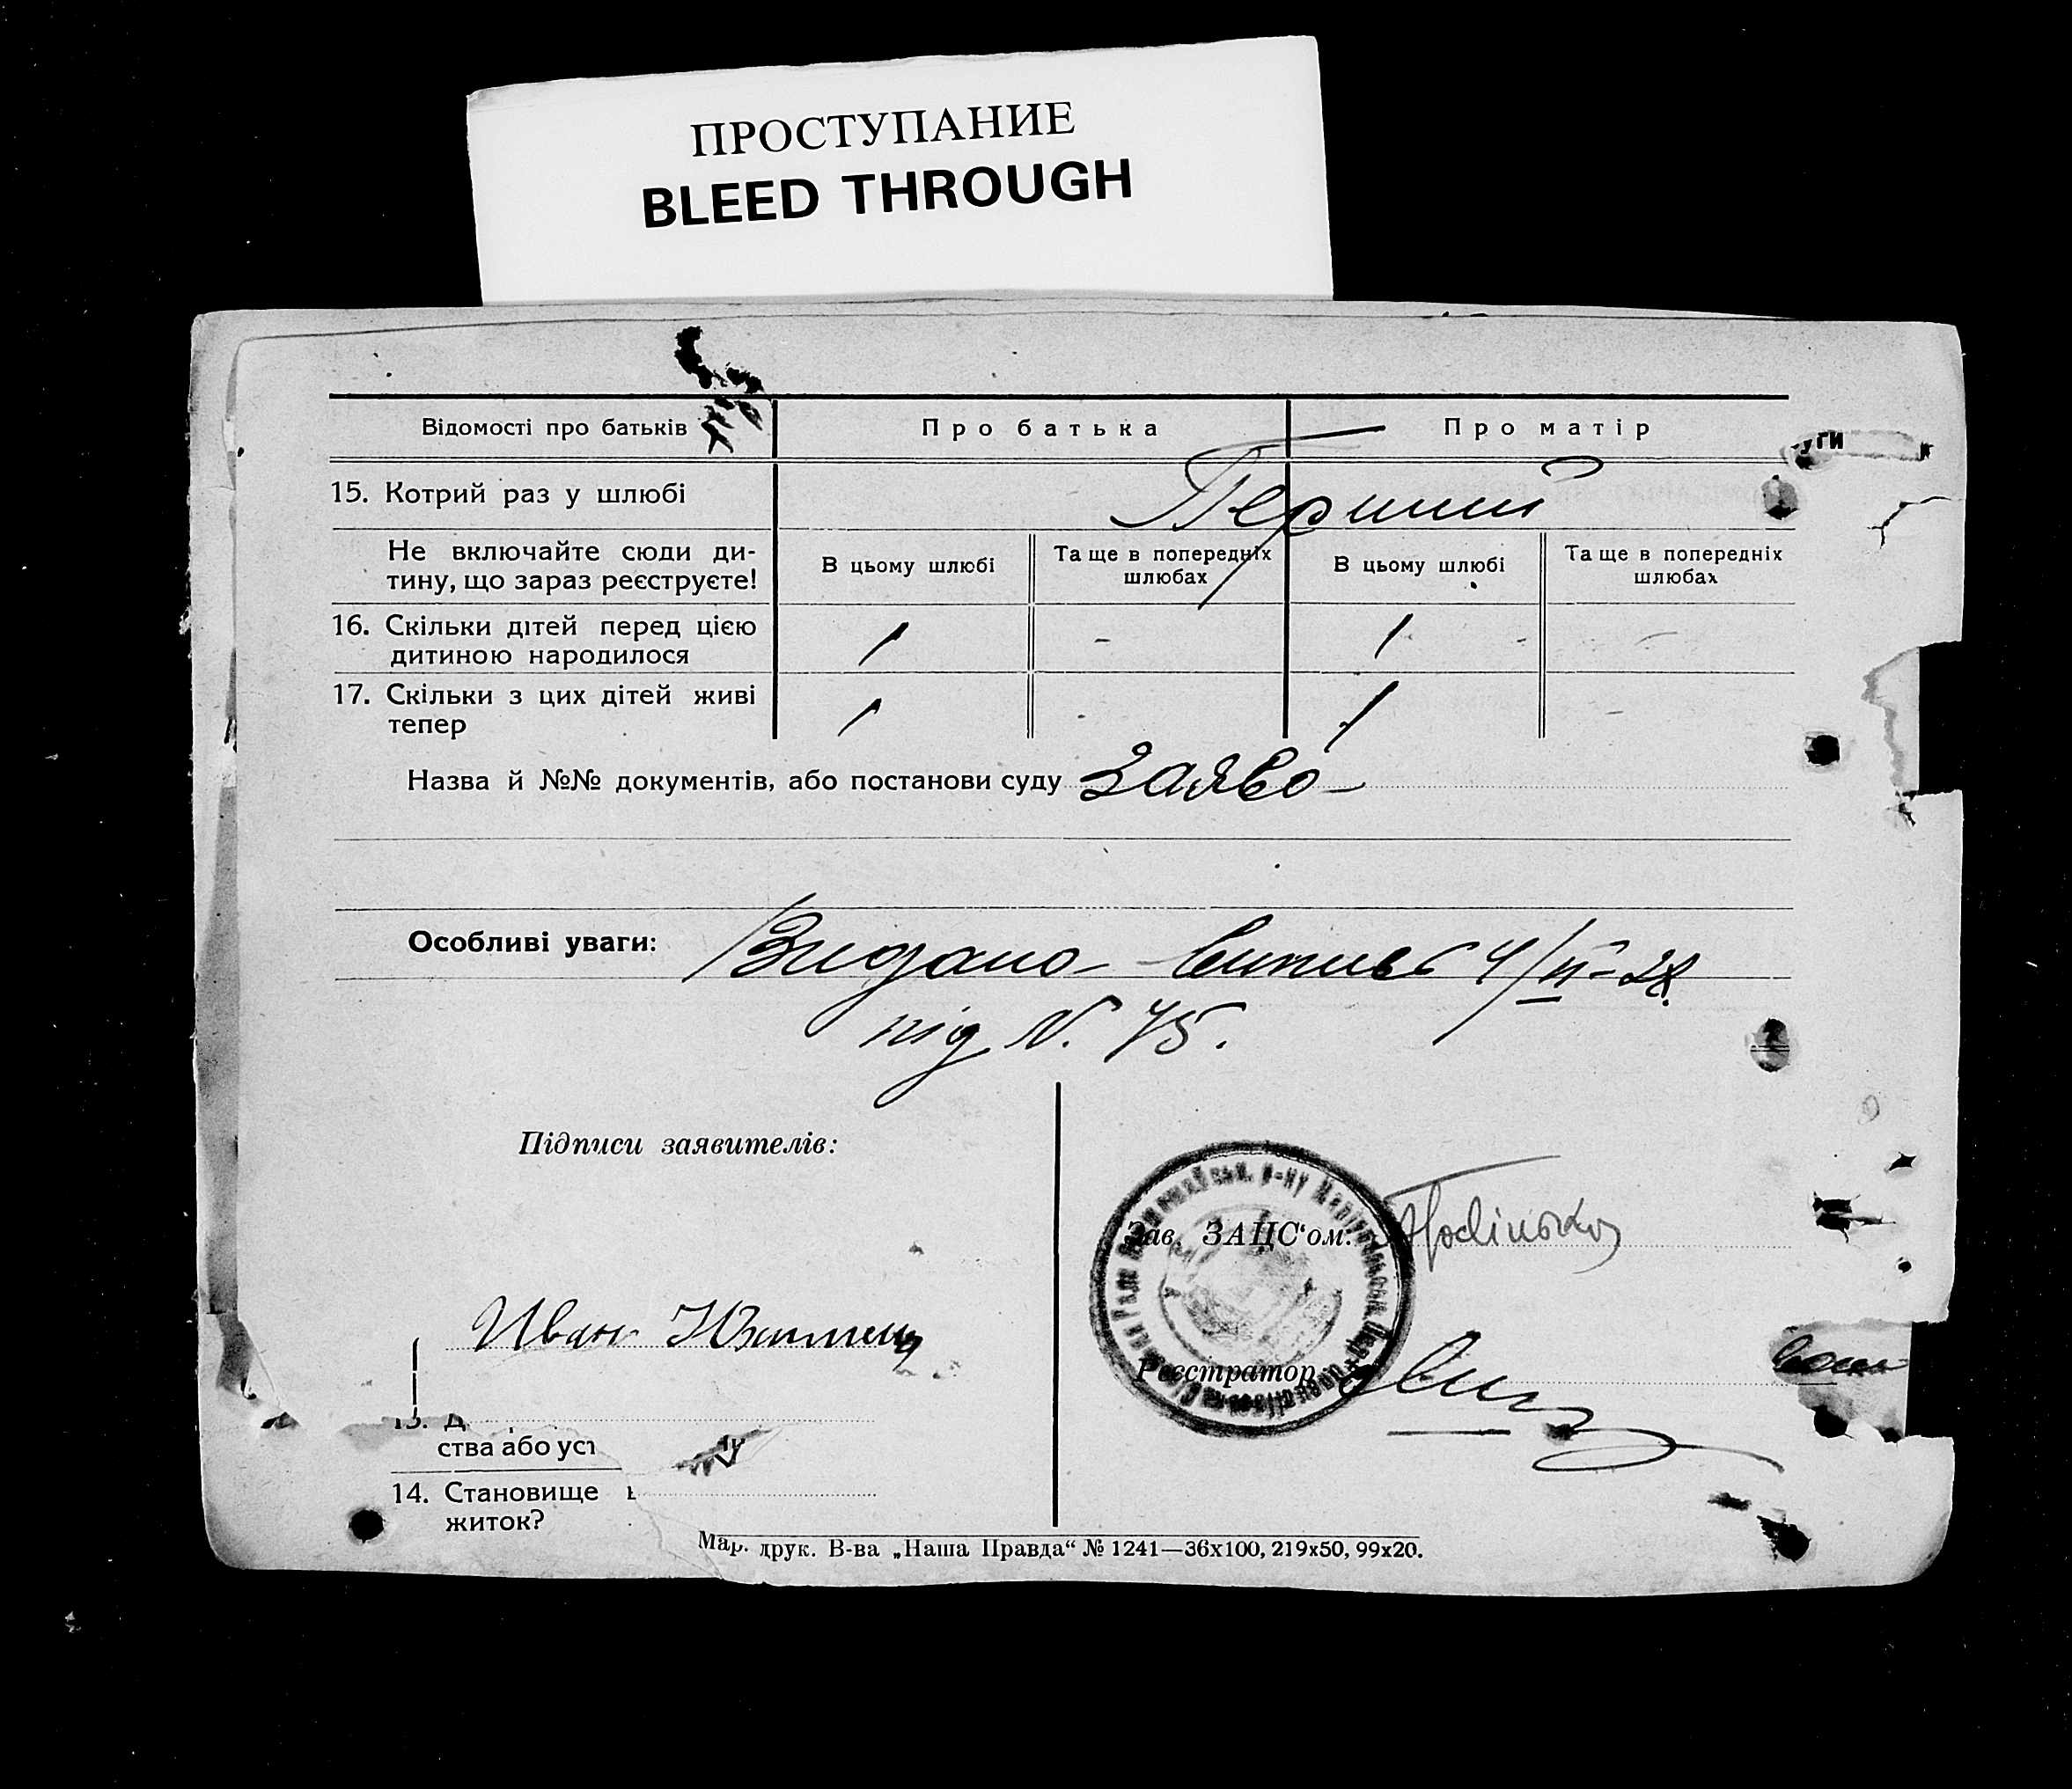 ПРОСТУПАНИЕ
BLEED THROUGH
Відомості про батьків
Про батька
Про матір
уги
15. Котрий раз у шлюбі
Перший
Не включайте сюди ди-
тину, що зараз реєструєте!
В цьому шлюбі
Та ще в попередніх
шлюбах
В цьому шлюбі
Та ще в попередніх
шлюбах
16. Скільки дітей перед цією
дитиною народилося
1 - 1 -
17. Скільки з цих дітей живі
тепер
1 - 1 -
Назва й №№ документів, або постанови суду заява
Особливі уваги: Видано випись 4/II-28
під N. 75.
Підписи заявителів:
Зав. ЗАЦС'ом:
Иван
Реєстратор
13. Д
ства або уст
14. Становище
житок?
Мар. друк. В-ва „Наша Правда“ № 1241—36х100, 219х50, 99х20.